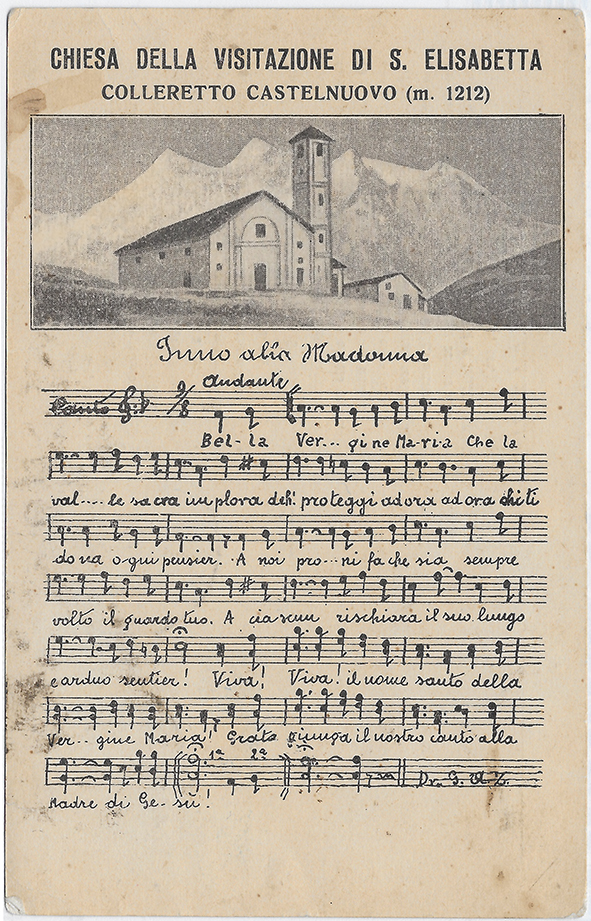 CHIESA DELLA VISITAZIONE DI S. ELISABETTA
COLLERETTO CASTELNUOVO (m. 1212)
Inno alla Madonna
Andante
Canto 9/8
Bel- la Ver... gine Ma-ri-a Che la
val.... le sacra implora deh! proteggi ad ora ad ora chi ti
dona ogni pensier. A noi pro... ni fa che sia sempre
volto il guardo tuo. A ciascun rischiara il suo lungo
e arduo sentier! Viva! Viva! il nome santo della
Ver... gine Maria! Grata giunga il nostro canto alla
1ª 2ª
Madre di Ge- sù!